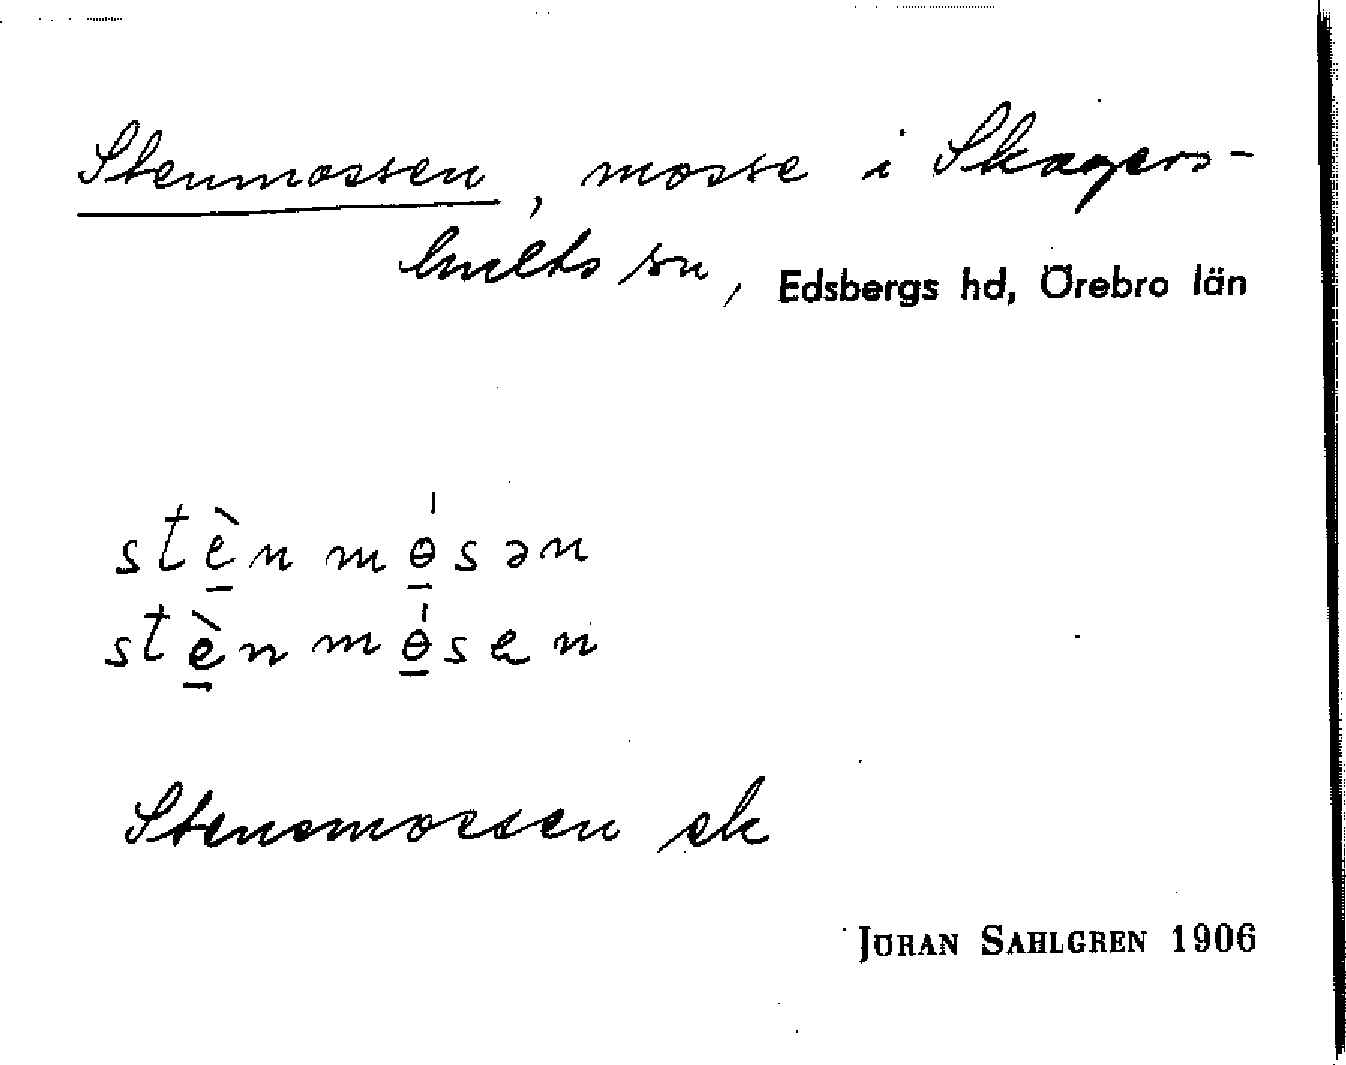 Stenmossen, mosse i Skagers-
hults sn, Edsbergs hd, Örebro län
stè̱nmɵ̱́sən
stè̱nmɵ̱́san
Stensmossen ek
JÖRAN SAHLGREN 1906